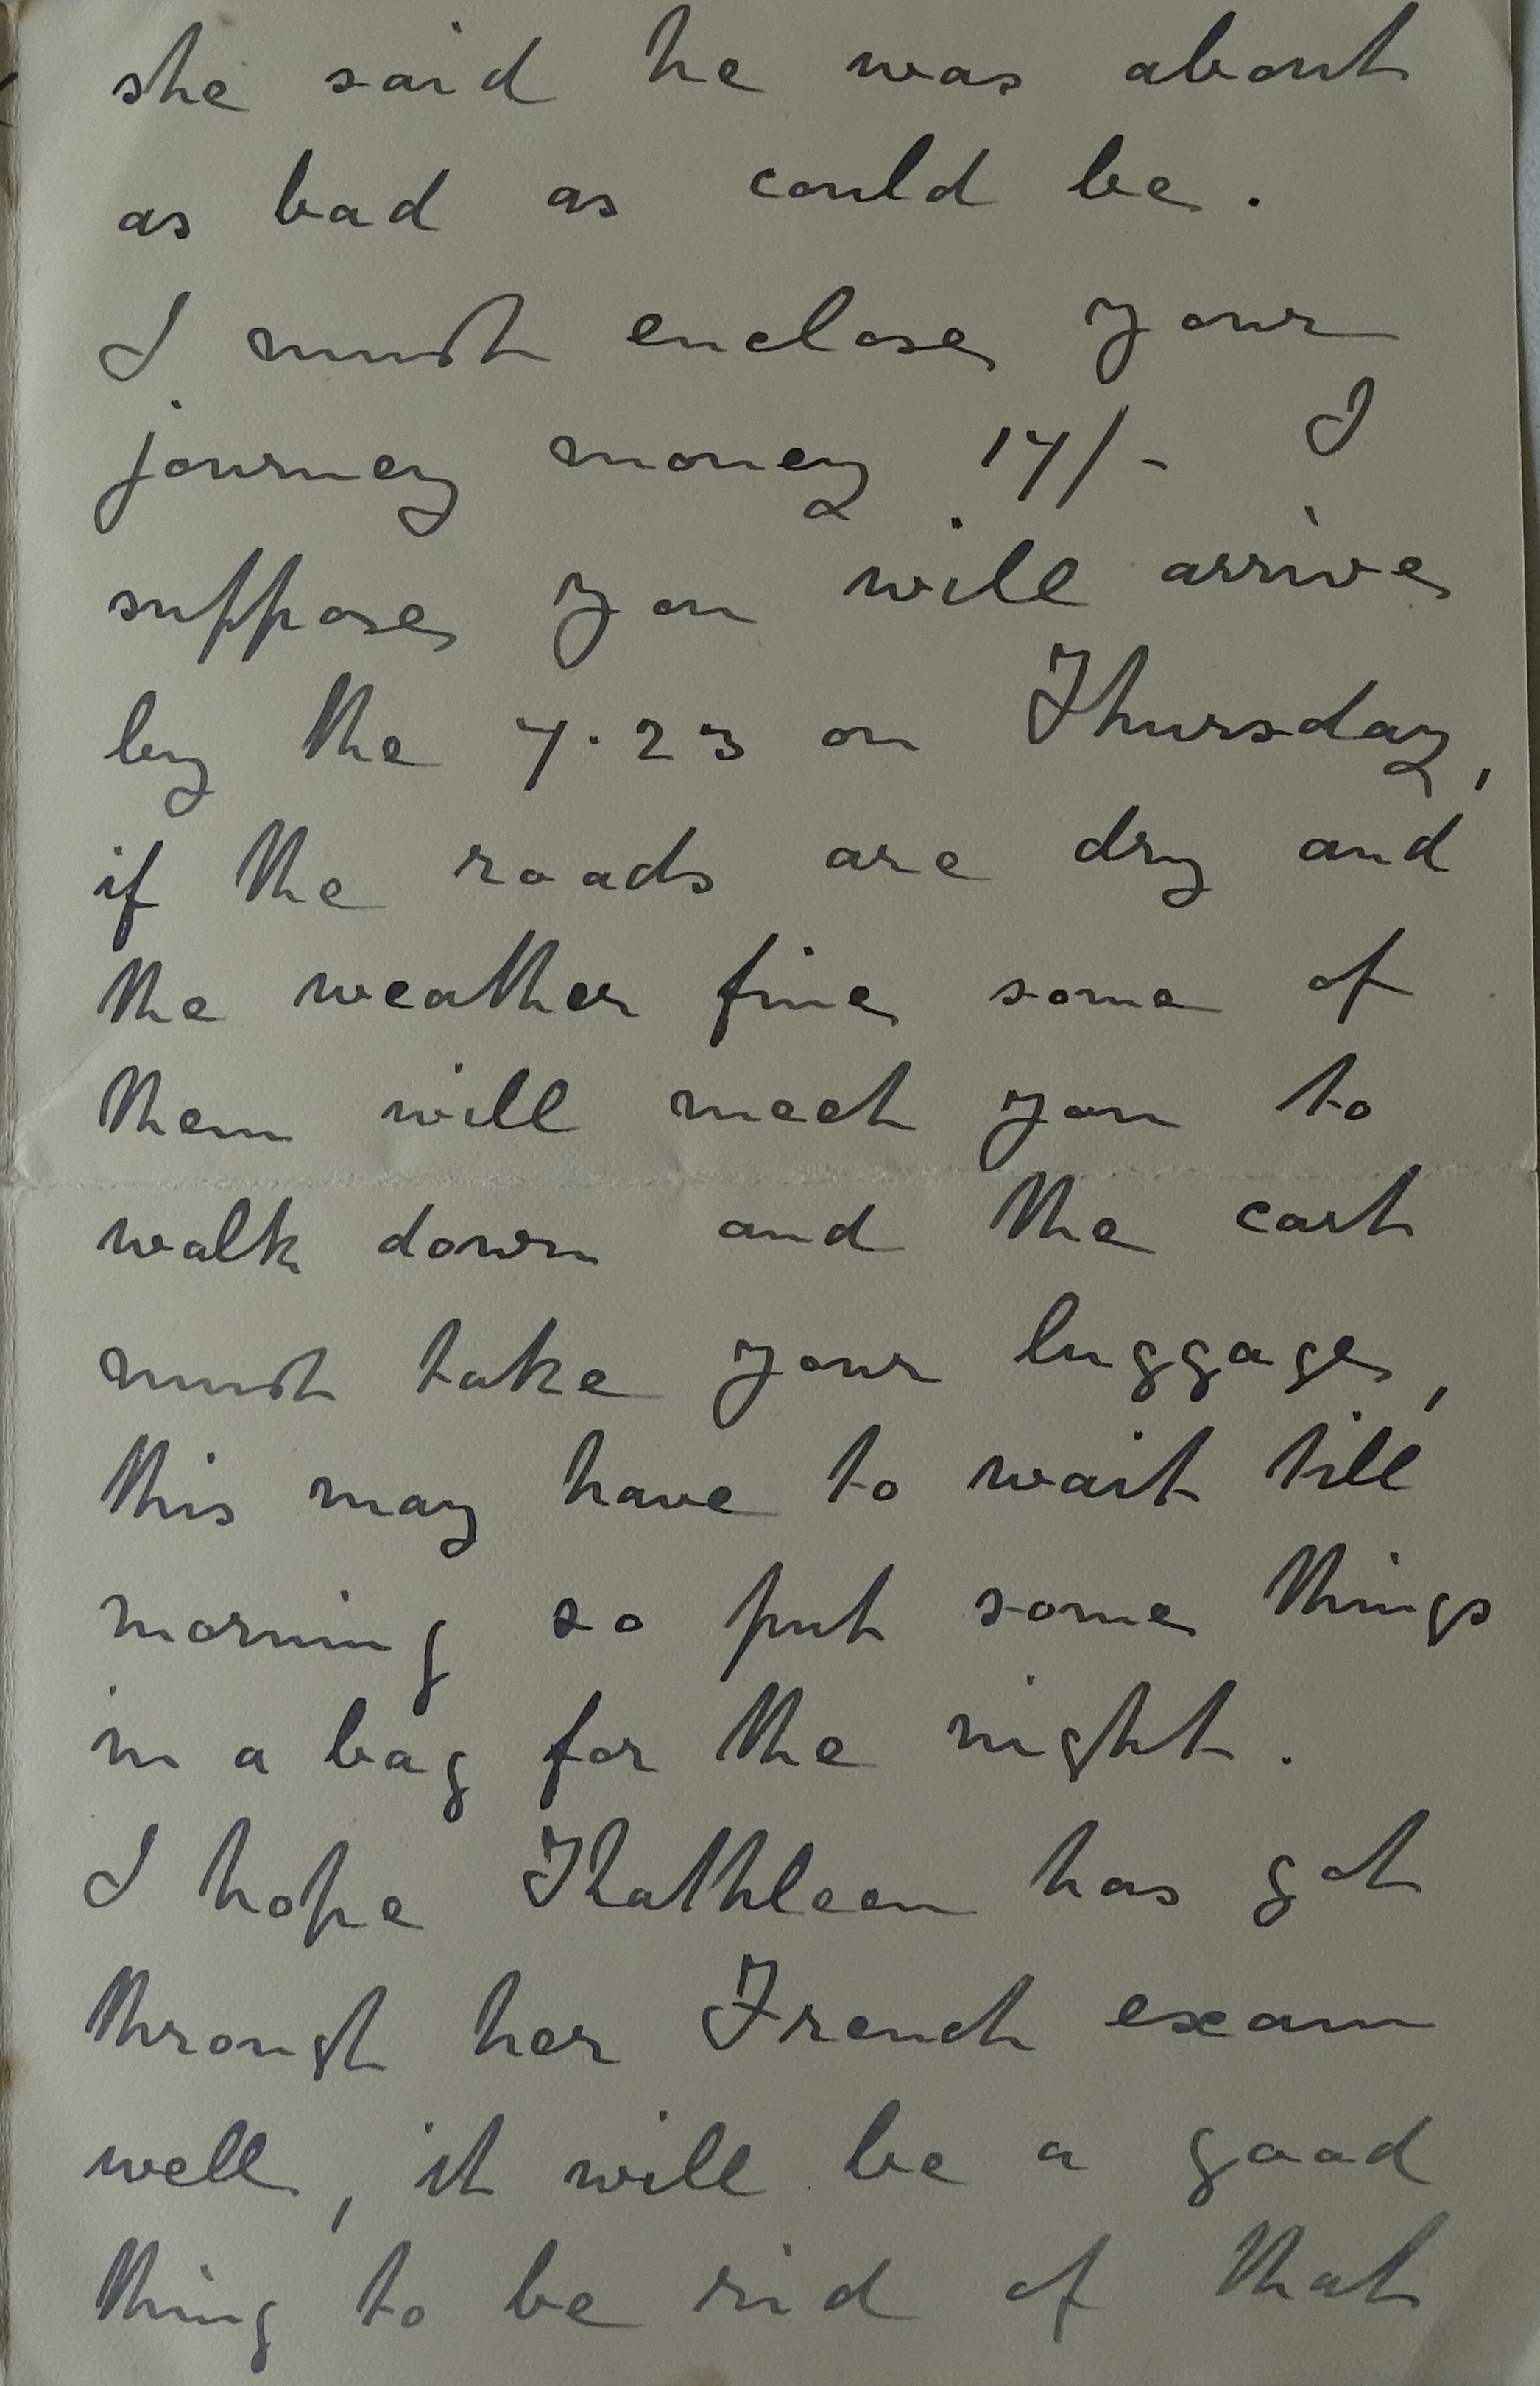 she said he was about
as bad as could be.
I must enclose your
journey money 17/- I
suppose you will arrive
by the 7.23 on Thursday,
if the roads are dry and
the weather fine some of
them will meet you to
walk down and the cart
must take your luggage,
this may have to wait till
morning so put some things
in a bag for the night.
I hope Kathleen has got
through her French exam
well, it will be a good
thing to be rid of that